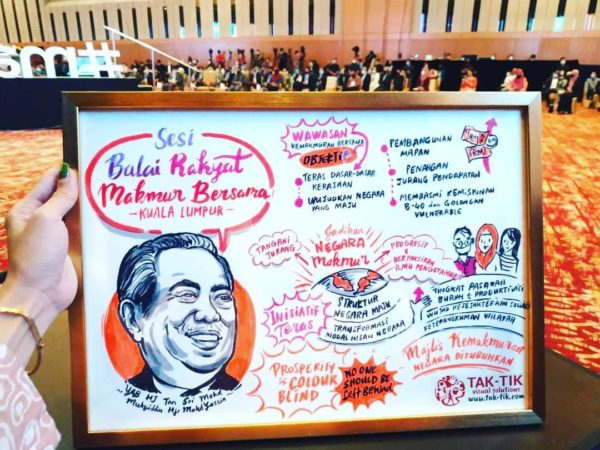 Sesi
Balai Rakyat
Makmur Bersama
- KUALA LUMPUR -
YAB Hj Tan Sri Mohd
Muhyiddin Hj Mohd Yassin
WAWASAN
KEMAKMURAN BERSAMA
OBJEKTIF
TERAS DASAR-DASAR
KERAJAAN
WUJUDKAN NEGARA
YANG MAJU
PEMBANGUNAN
MAPAN
PENANGAN
JURANG PENDAPATAN
MEMBASMI KEMISKINAN
B-40 dan GOLONGAN
VULNERABLE
RM
TANGANI
JURANG
Jadikan
NEGARA
Makmur
PROGRESIF
BERPAKSIKAN
ILMU PENGETAHUAN
STRUKTUR
NEGARA MAJU
TRANSFORMASI
MODAL INSAN NEGARA
INISIATIF
TERAS
TINGKAT PASARAN
BURUH & PRODUKTIVITI
WUJUD KESEJAHTERAAN SOSIAL
KETERANGKUMAN WILAYAH
PROSPERITY
is COLOUR
BLIND
NO ONE
SHOULD BE
Left Behind
Majlis Kemakmuran
NEGARA DITUBUHKAN
TAK-TIK
visual solutions
www.tak-tik.com